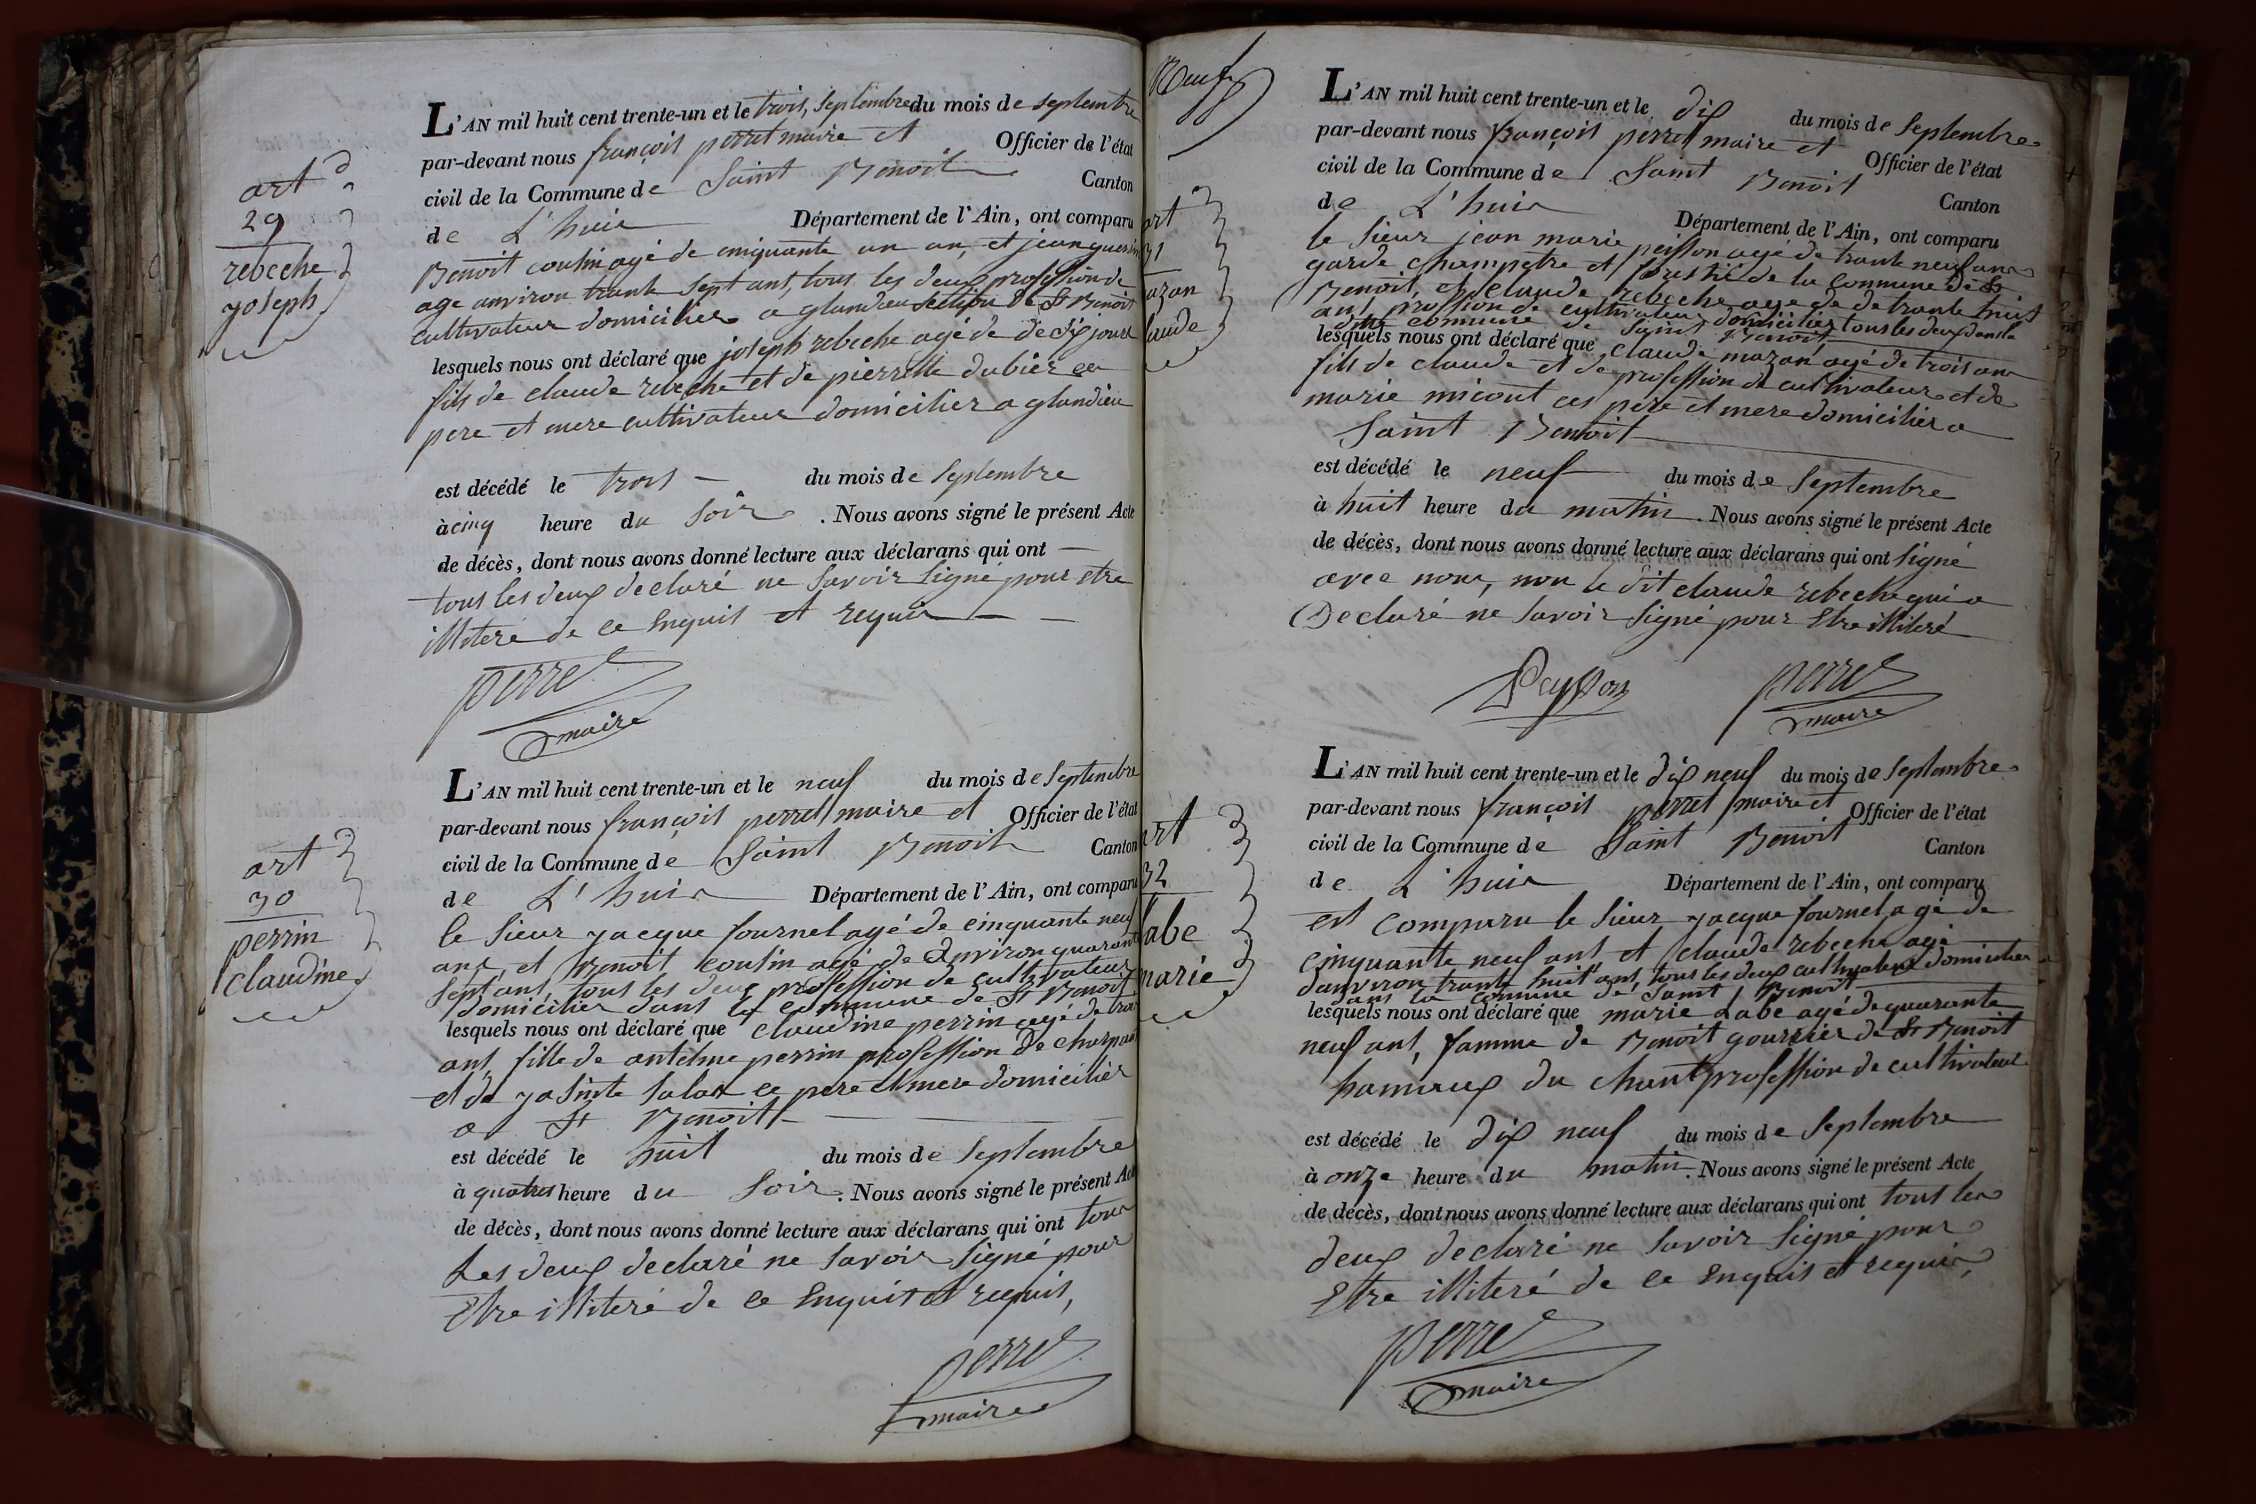 art
29
rebeche
joseph
L'AN mil huit cent trente-un et le trois, septembre du mois de septembre
par-devant nous françois perret maire et Officier de l'état
civil de la Commune de Saint Benoit Canton
de L'huis Département de l'Ain, ont comparu
Benoit cousin agé de cinquante un an, et jean
age anviron trante sept ant, tous les deux profession de
cultivateur domicilier a glandieu section de St Benoit
lesquels nous ont déclaré que joseph rebeche agé de dedix jours
fils de claude rebeche et de pierrette dubier ce
pere et mere cultivateur domicilier a glandieu
est décédé le trois du mois de septembre
à cinq heure du soir . Nous avons signé le présent Acte
de décès, dont nous avons donné lecture aux déclarans qui ont
tous les deux declaré ne savoir signé pour etre
illiteré de ce Enquis et requis
perret
maire
art
30
perrin
claudine
L'AN mil huit cent trente-un et le neuf du mois de septembre
par-devant nous françois perret maire et Officier de l'état
civil de la Commune de Saint Benoit Canton
de L'huis Département de l'Ain, ont comparu
le sieur jacque fournel agé de cinquante neuf
ans, et Benoit cousin agé de Anviron quarante
sept ans, tous les deux profession de cultivateur
domicilier dans la commune de St Benoit
lesquels nous ont déclaré que claudine perrin agé de trois
ant, fille de antelme perrin profession de
et de jasinte ce pere et mere domicilier
a St Benoit
est décédé le huit du mois de septembre
à quatres heure du soir . Nous avons signé le présent Acte
de décès, dont nous avons donné lecture aux déclarans qui ont tous
Les deux declaré ne savoir signé pour
Etre illiteré de ce Enquis et requis,
perret
maire
Neuf
art
31
mazon
claude
L'AN mil huit cent trente-un et le dix du mois de septembre
par-devant nous françois perret maire et Officier de l'état
civil de la Commune de Saint Benoit Canton
de L'huis Département de l'Ain, ont comparu
le sieur jean marie peysson agé de trante neuf ans
garde champetre et forestié de la commune de St
Benoit, et claude rebeche agé de de trante huit
ant profession de cultivateur domicilier tous les deux dans la
dite commune de Saint Benoit
lesquels nous ont déclaré que claude mazon agé de trois ans
fils de claude et de profession de cultivateur et de
marie micout ces pere et mere domicilier a
Saint Benoit
est décédé le neuf du mois de septembre
à huit heure du matin . Nous avons signé le présent Acte
de décès, dont nous avons donné lecture aux déclarans qui ont signé
avec nous, non le dit claude rebeche qui a
Declaré ne savoir signé pour Etre illiteré
Peysson
perret
maire
art
32
labe
marie
L'AN mil huit cent trente-un et le dix neuf du mois de septembre
par-devant nous françois perret maire et Officier de l'état
civil de la Commune de Saint Benoit Canton
de L'huis Département de l'Ain, ont comparu
est comparu le sieur jacque fournel agé de
cinquante neuf ant et claude rebeche agé
danviron trante huit ant, tous les deux cultivateur domicilier
dans la commune de Saint Benoit
lesquels nous ont déclaré que marie Labe agé de quarante
neuf ant, famme de Benoit gourrier de St Benoit
hamaux du chant profession de cultivateur
est décédé le dix neuf du mois de septembre
à onze heure du matin . Nous avons signé le présent Acte
de décès, dont nous avons donné lecture aux déclarans qui ont tous les
deux declaré ne savoir signé pour
Etre illiteré de ce Enquis et requis,
perret
maire